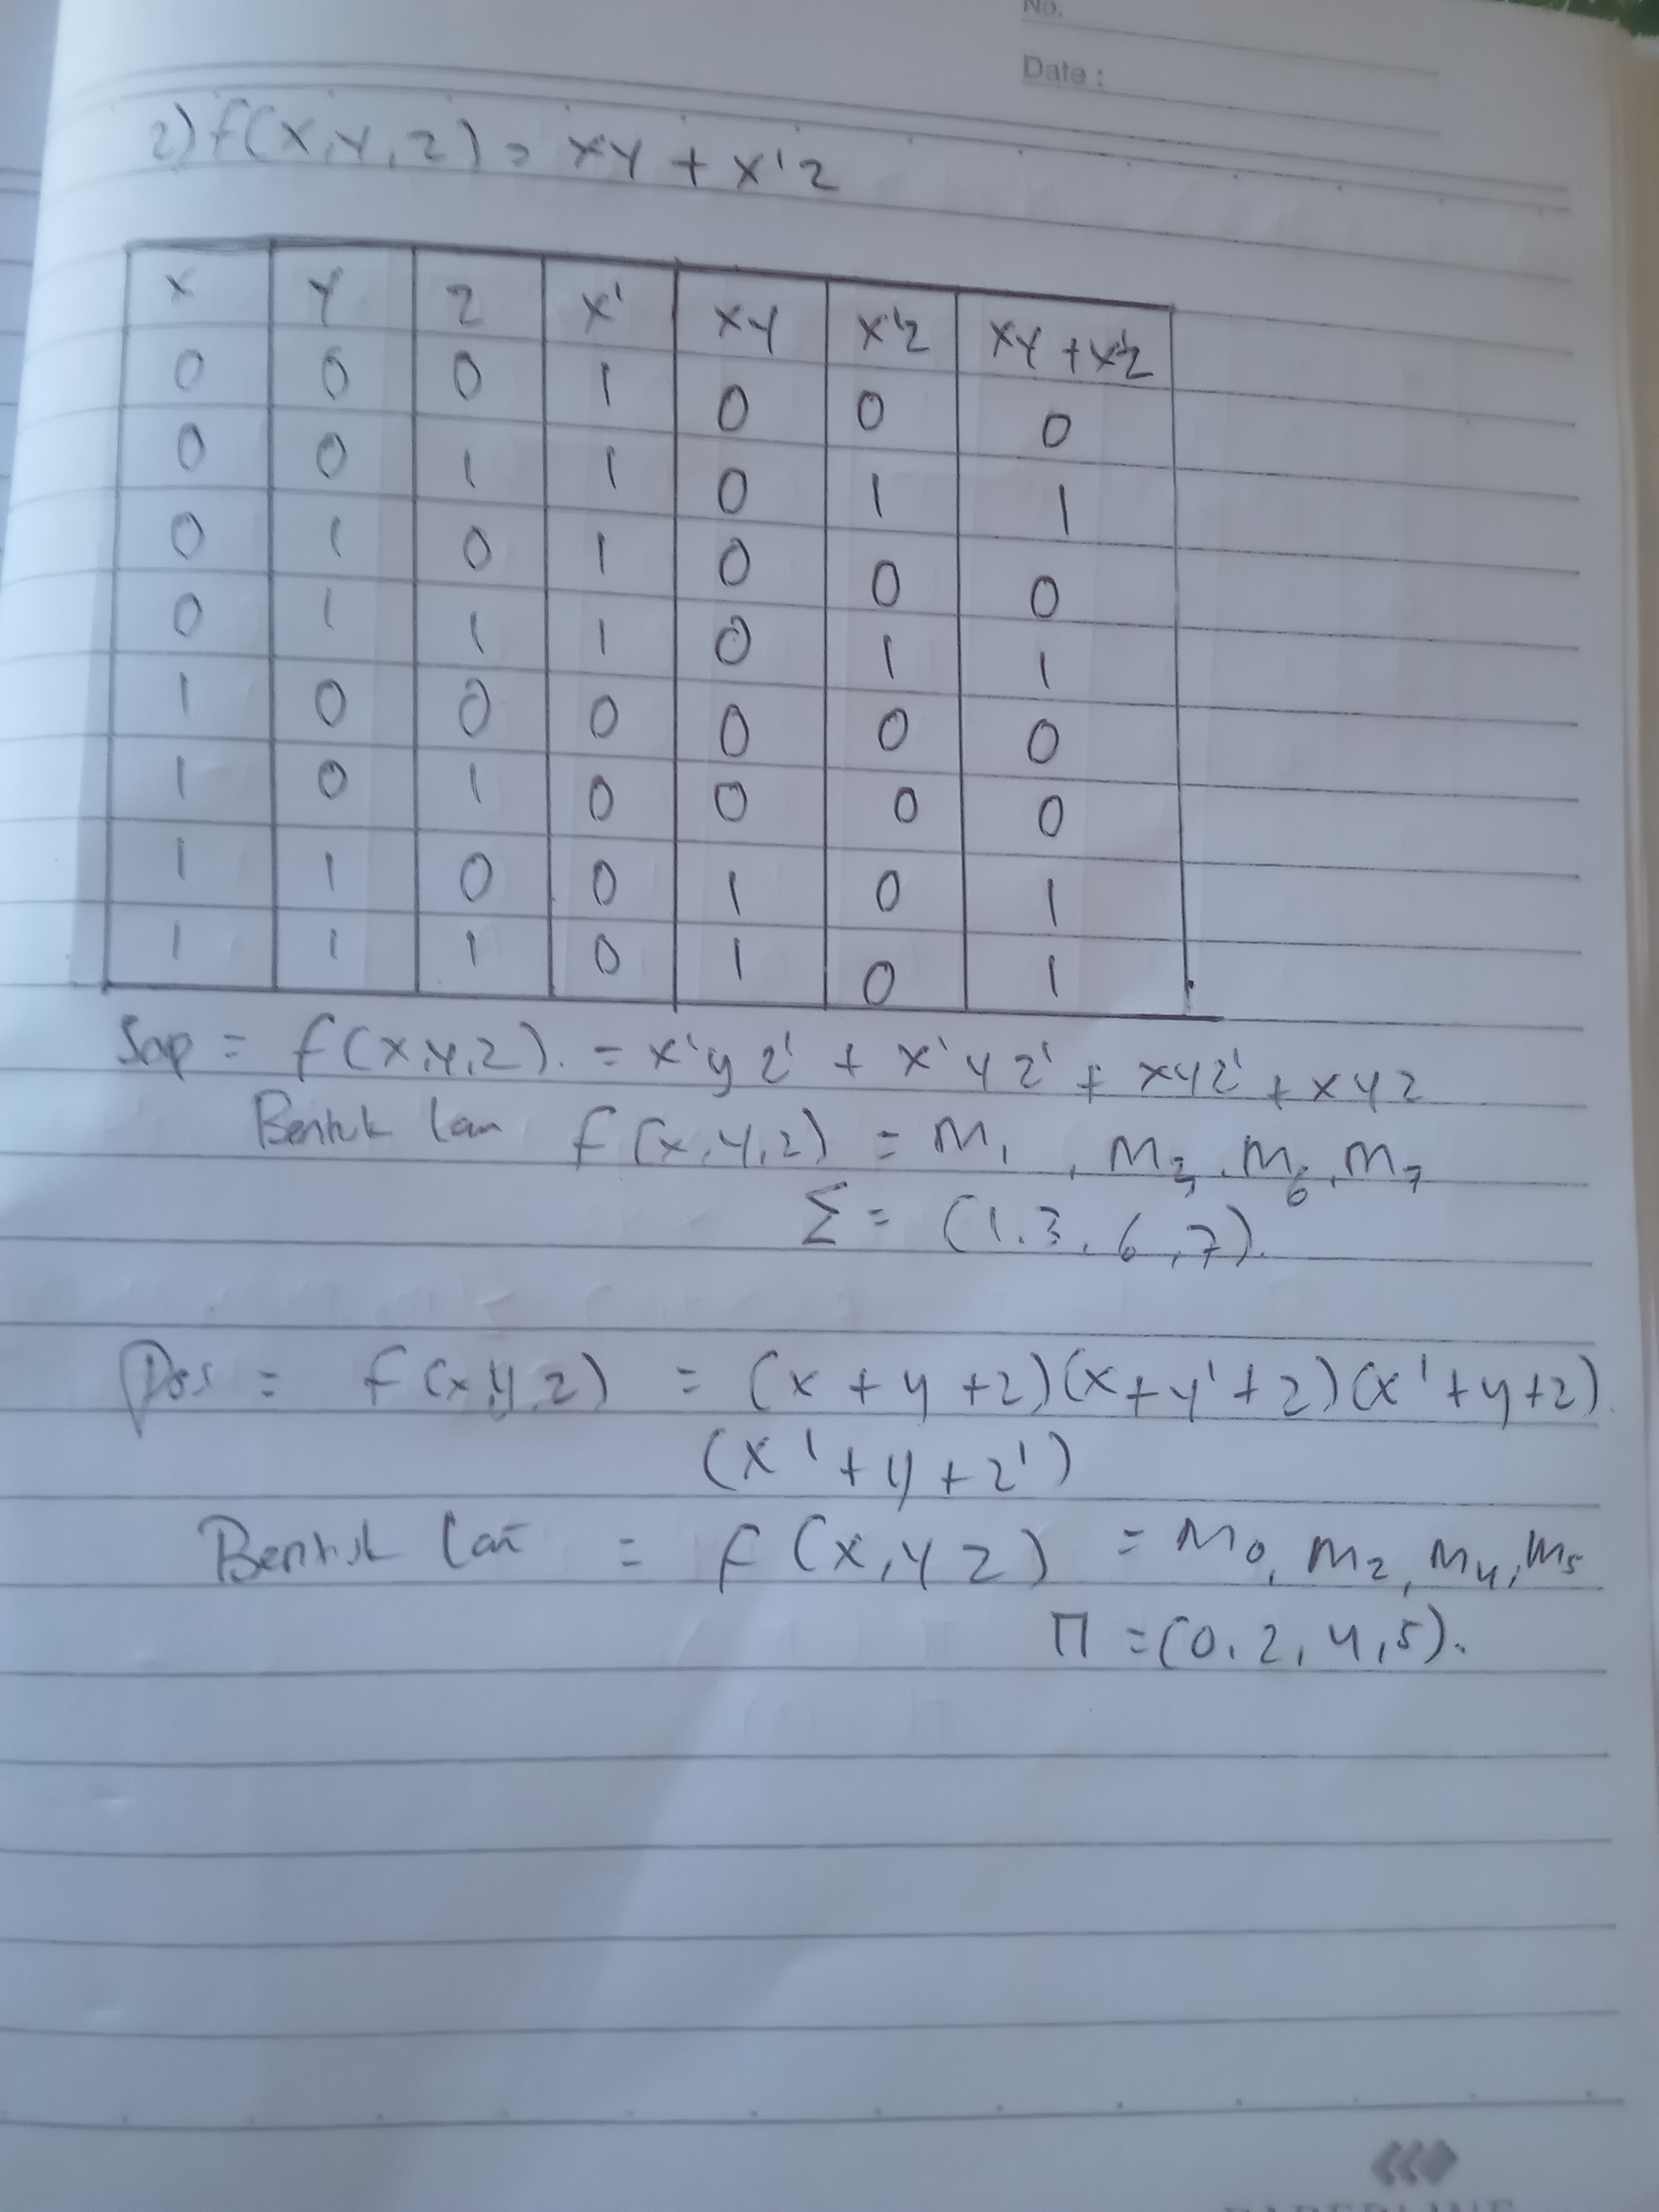 No.
Date :
2) f(x,y,z) = xy + x'z
x y z x' xy x'z xy + x'z
0 0 0 1 0 0 0
0 0 1 1 0 1 1
0 1 0 1 0 0 0
0 1 1 1 0 1 1
1 0 0 0 0 0 0
1 0 1 0 0 0 0
1 1 0 0 1 0 1
1 1 1 0 1 0 1
Sop = f(x,y,z). = x'y z' + x'y z' + xyz' + xyz
Bentuk lain f(x,y,z) = m₁, m₃, m₆, m₇
Σ = (1.3, 6, 7).
Pos = f(x,y,z) = (x + y + z)(x + y' + z)(x' + y + z).
(x' + y + z')
Bentuk lain = f(x,y z) = M₀, M₂, M₄, M₅
Π = (0, 2, 4, 5).